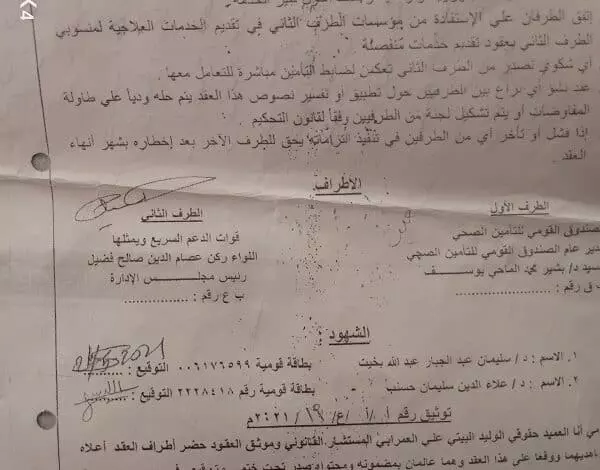 إتفق الطرفان علي الإستفادة من مؤسسات الطرف الثاني في تقديم الخدمات العلاجية لمنسوبي
الطرف الثاني بعقود تقديم خدمات منفصلة
أي شكوي تصدر من الطرف الثاني تعكس لضابط التأمين مباشرة للتعامل معها
عند نشو أي نزاع بين الطرفين حول تطبيق أو تفسير نصوص هذا العقد يتم حله ودياً علي طاولة
المفاوضات أو يتم تشكيل لجنة من الطرفين وفقاً لقانون التحكيم
إذا فشل أو تأخر أي من الطرفين في تنفيذ إلتزاماته يحق للطرف الآخر بعد إخطاره بشهر أنهاء
العقد
الأطراف
الطرف الأول
الصندوق القومي للتأمين الصحي
مدير عام الصندوق القومي للتأمين الصحي
السيد د/ بشير محمد الماحي يوسف
ب ق رقم : ....................
الطرف الثاني
قوات الدعم السريع ويمثلها
اللواء ركن عصام الدين صالح فضيل
رئيس مجلس الإدارة
ب ع رقم : ...............
الشهود
١. الاسم : د/ سليمان عبد الجبار عبد الله بخيت بطاقة قومية ٠٠٦١٧٦٥٩٩ التوقيع :
٢. الاسم : د/ علاء الدين سليمان حسنب - بطاقة قومية رقم ٢٢٢٨٤١٨ التوقيع :
توثيق رقم أ /أ /ع/ ١٩ /٢٠٢١م
أنا العميد حقوقي الوليد البيتي علي العمرابي المستشار القانوني وموثق العقود حضر أطراف العقد أعلاه
ووقعا علي هذا العقد وهما عالمان بمضمونه ومحتواه صدر تحت